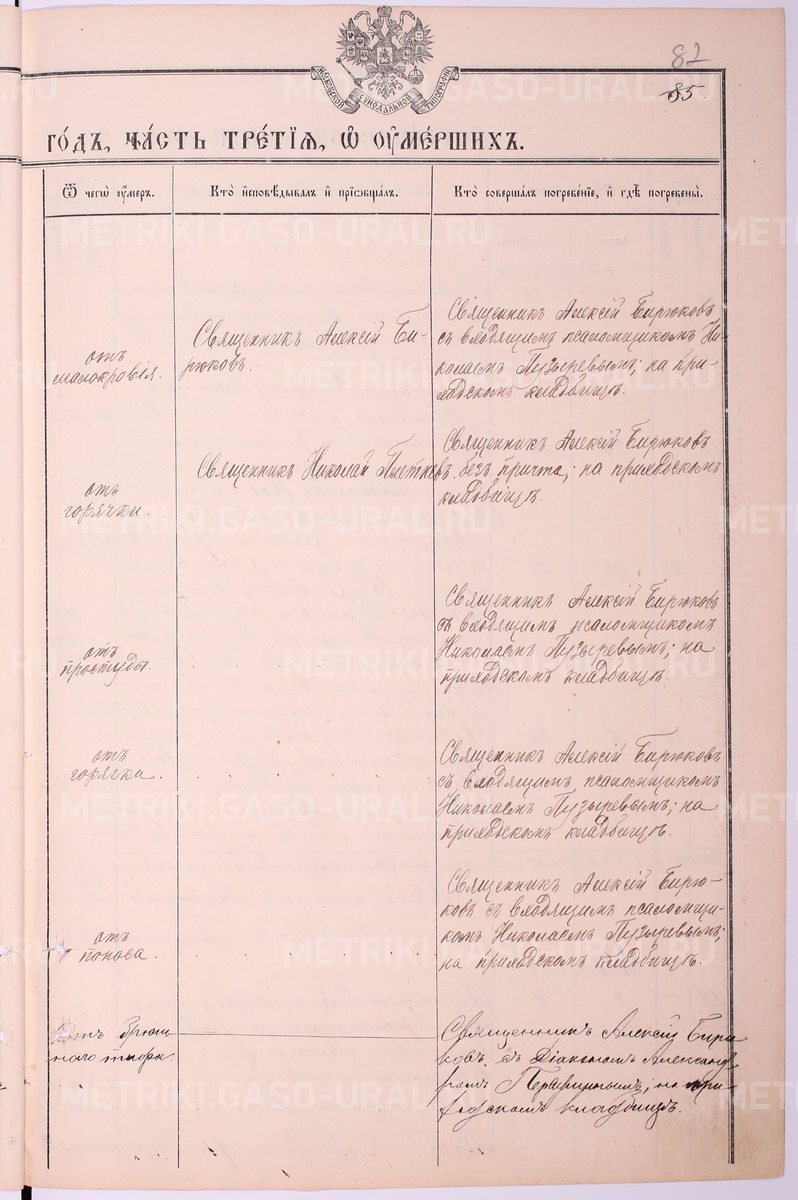 82
85
МОСКОВСКОЙ СѴНОДАЛЬНОЙ ТИПОГРАФІИ
го́дъ, ча́сть тре́тїѧ, ѡ҆ ᲂу҆ме́ршихъ.
Ѿ чегѡ̀ ᲂу҆́меръ.
Кто̀ и҆сповѣ́дывалъ и҆ прїѡбща́лъ.
Кто̀ соверша́лъ погребе́нїе, и҆ гдѣ̀ погребены̀.
отъ
малокровія.
Священникъ Алексій Би-
рюковъ.
Священникъ Алексій Бирюковъ
съ и.д. псаломщикомъ Ни-
колаемъ Пузыревымъ; на при-
ходскомъ кладбищѣ.
отъ
горячки.
Священникъ Николай Плетневъ.
Священникъ Алексій Бирюковъ
безъ причта; на приходскомъ
кладбищѣ.
отъ
простуды
Священникъ Алексій Бирюковъ
съ псаломщикомъ
Николаемъ Пузыревымъ; на
приходскомъ кладбищѣ.
отъ
горячки.
Священникъ Алексій Бирюковъ
съ псаломщикомъ
Николаемъ Пузыревымъ; на
приходскомъ кладбищѣ.
отъ
поноса.
Священникъ Алексій Бирю-
ковъ съ псаломщи-
комъ Николаемъ Пузыревымъ;
на приходскомъ кладбищѣ.
Отъ брюш-
ного тифа.
Священникъ Алексій Бирю-
ковъ съ Діакономъ Александ-
ромъ; на при-
ходскомъ кладбищѣ.
METRIKI.GASO-URAL.RU